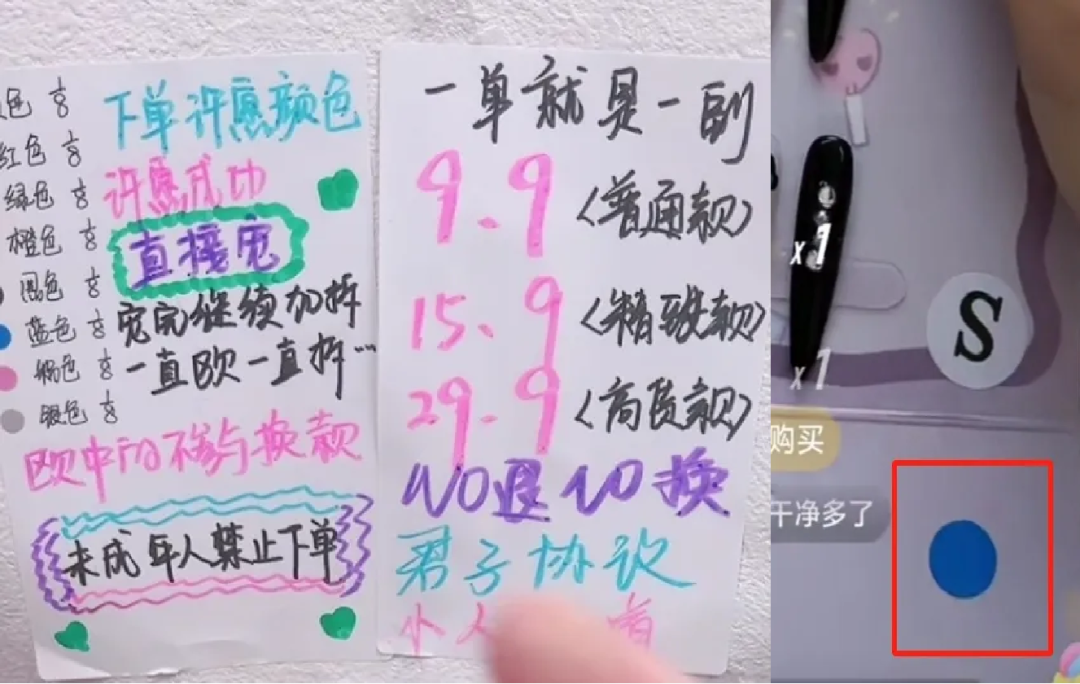 色
红色
绿色
橙色
黑色
蓝色
粉色
银色
下单许愿颜色
许愿成功
直接宠
宠完继续加拆
一直欧一直拆…
欧中的不参与换款
未成年人禁止下单
一单就是一副
9.9〈普通款〉
15.9〈精致款〉
29.9〈高货款〉
NO退NO换
君子协议
小人
x1
S
x1
购买
干净多了